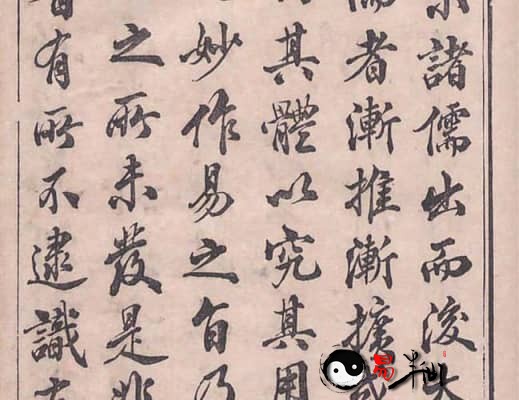 諸儒出而後大
者漸推漸擴或
其體以究其用
妙作易之旨乃
之所未發是非
有所不逮識
易半仙